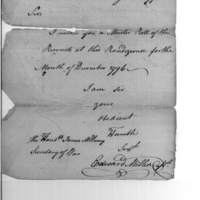 Sir
I inclose you a Muster Role of the
Recruits at this Randezvous for the
Month of December 1796.
I am Sir
your
obedient
Humble
Servt
The Honble James McHenry
Secretary of War
Edward Miller Capt.